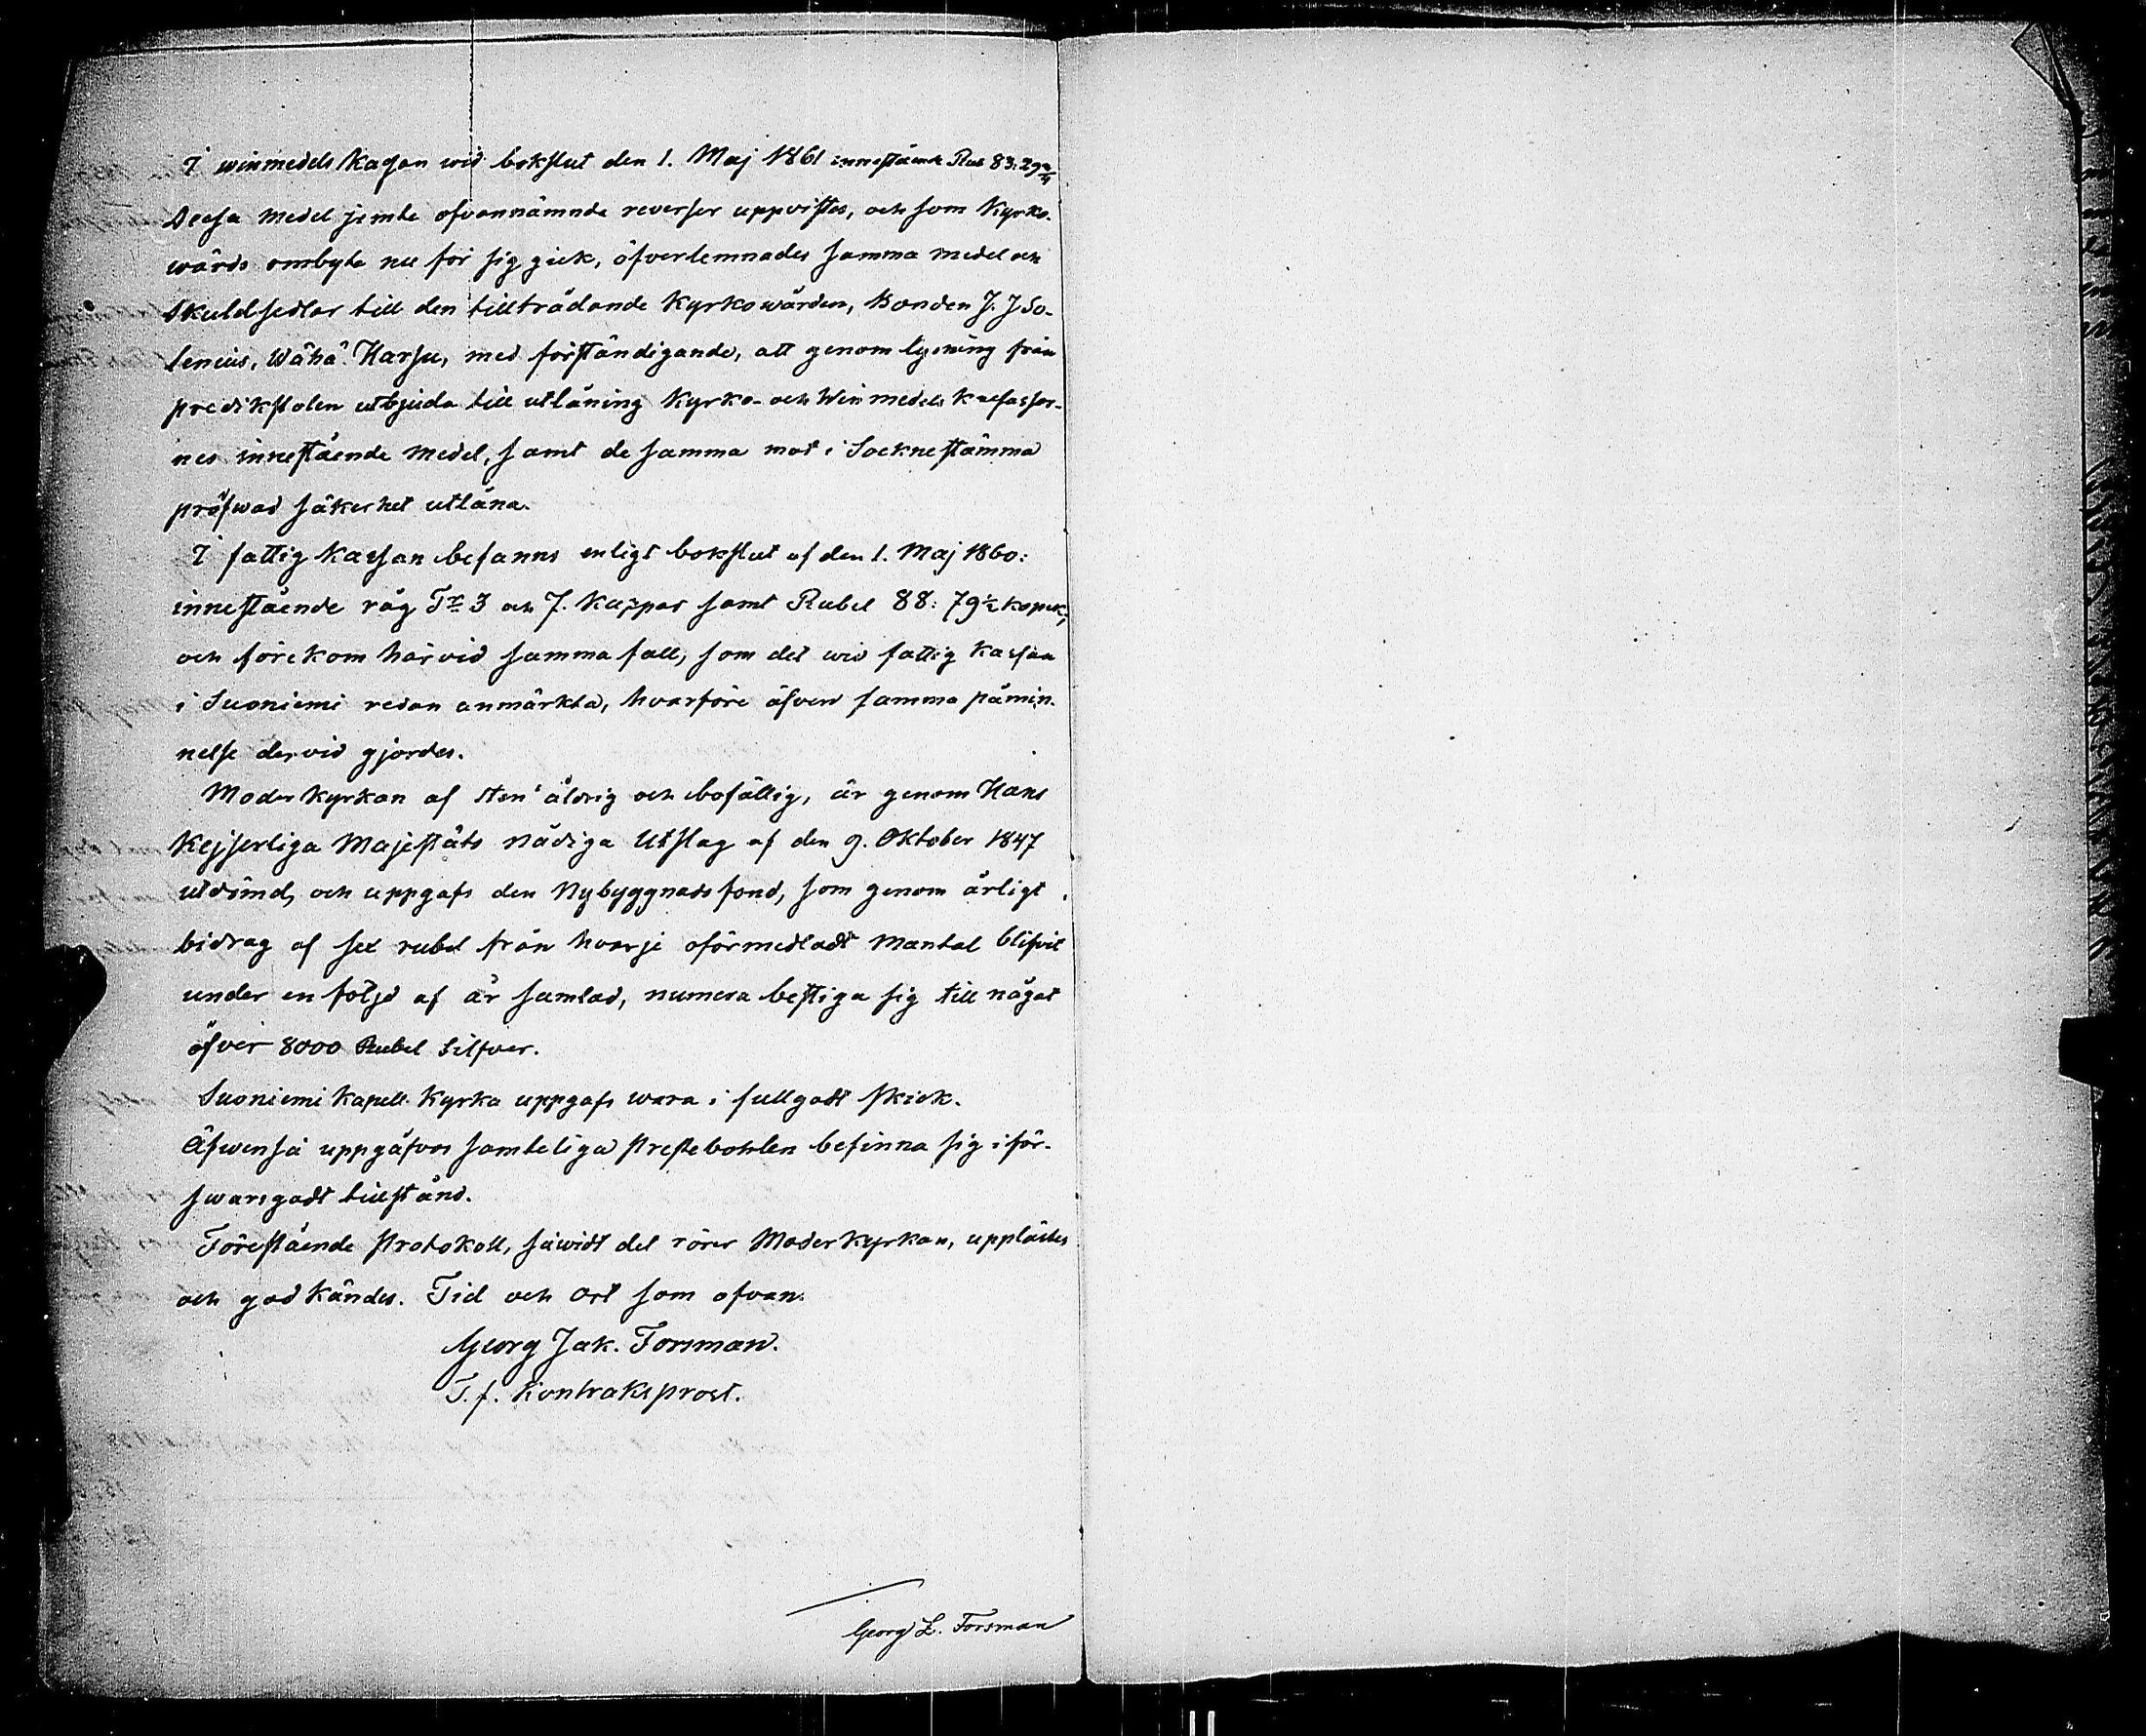 I winmedels Kassan wid bokslut den 1. Maj 1861 innestående Rub 83: 29 3/4
Dessa medel jemte ofvannämnde reverser uppvistes, och som Kyrko-
wärds ombyte nu för sig gick, öfverlemnades samma medel och
skuldsedlar till den tillträdande Kyrkowärden, Bonden J. J So-
lenius, Wähä Harju, med förständigande, att genom lysning från
predikstolen utbjuda till utlåning Kyrko- och Winmedels
nes innestående medel, samt de samma mot i Socknestämma
pröfwad säkerhet utlåna.
I fattig Kassan befanns enligt bokslut af den 1. Maj 1860:
innestående råg Tr 3 och 7. Kappar samt Rubel 88: 79 1/2 kopek;
och förekom härvid samma fall, som det wid fattig kassan
i Suoniemi redan anmärkta, hvarföre äfven samma påmin-
nelse dervid gjordes.
Moder Kyrkan af sten åldrig och bofällig, är genom Hans
Kejserliga Majestäts Nådiga Utslag af den 9. Oktober 1847
utdömd, och uppgafs den Nybyggnads fond, som genom årligt
bidrag af sex rubel från hvarje oförmedladt Mantal blifvit
under en följd af år samlad, numera bestiga sig till något
öfver 8000 Rubel Silfver.
Suoniemi Kapell Kyrka uppgafs wara i fullgodt skick.
Äfwenså uppgåfvos samteliga Prestebohlen befinna sig i för-
swarsgodt tillstånd.
Förestående Protokoll, såwidt det rörer Moderkyrkan, upplästes
och god Kändes. Tid och Ort som ofvan.
Georg Jak. Forsman.
T. f. Kontraksprost.
Georg Z. Forsman